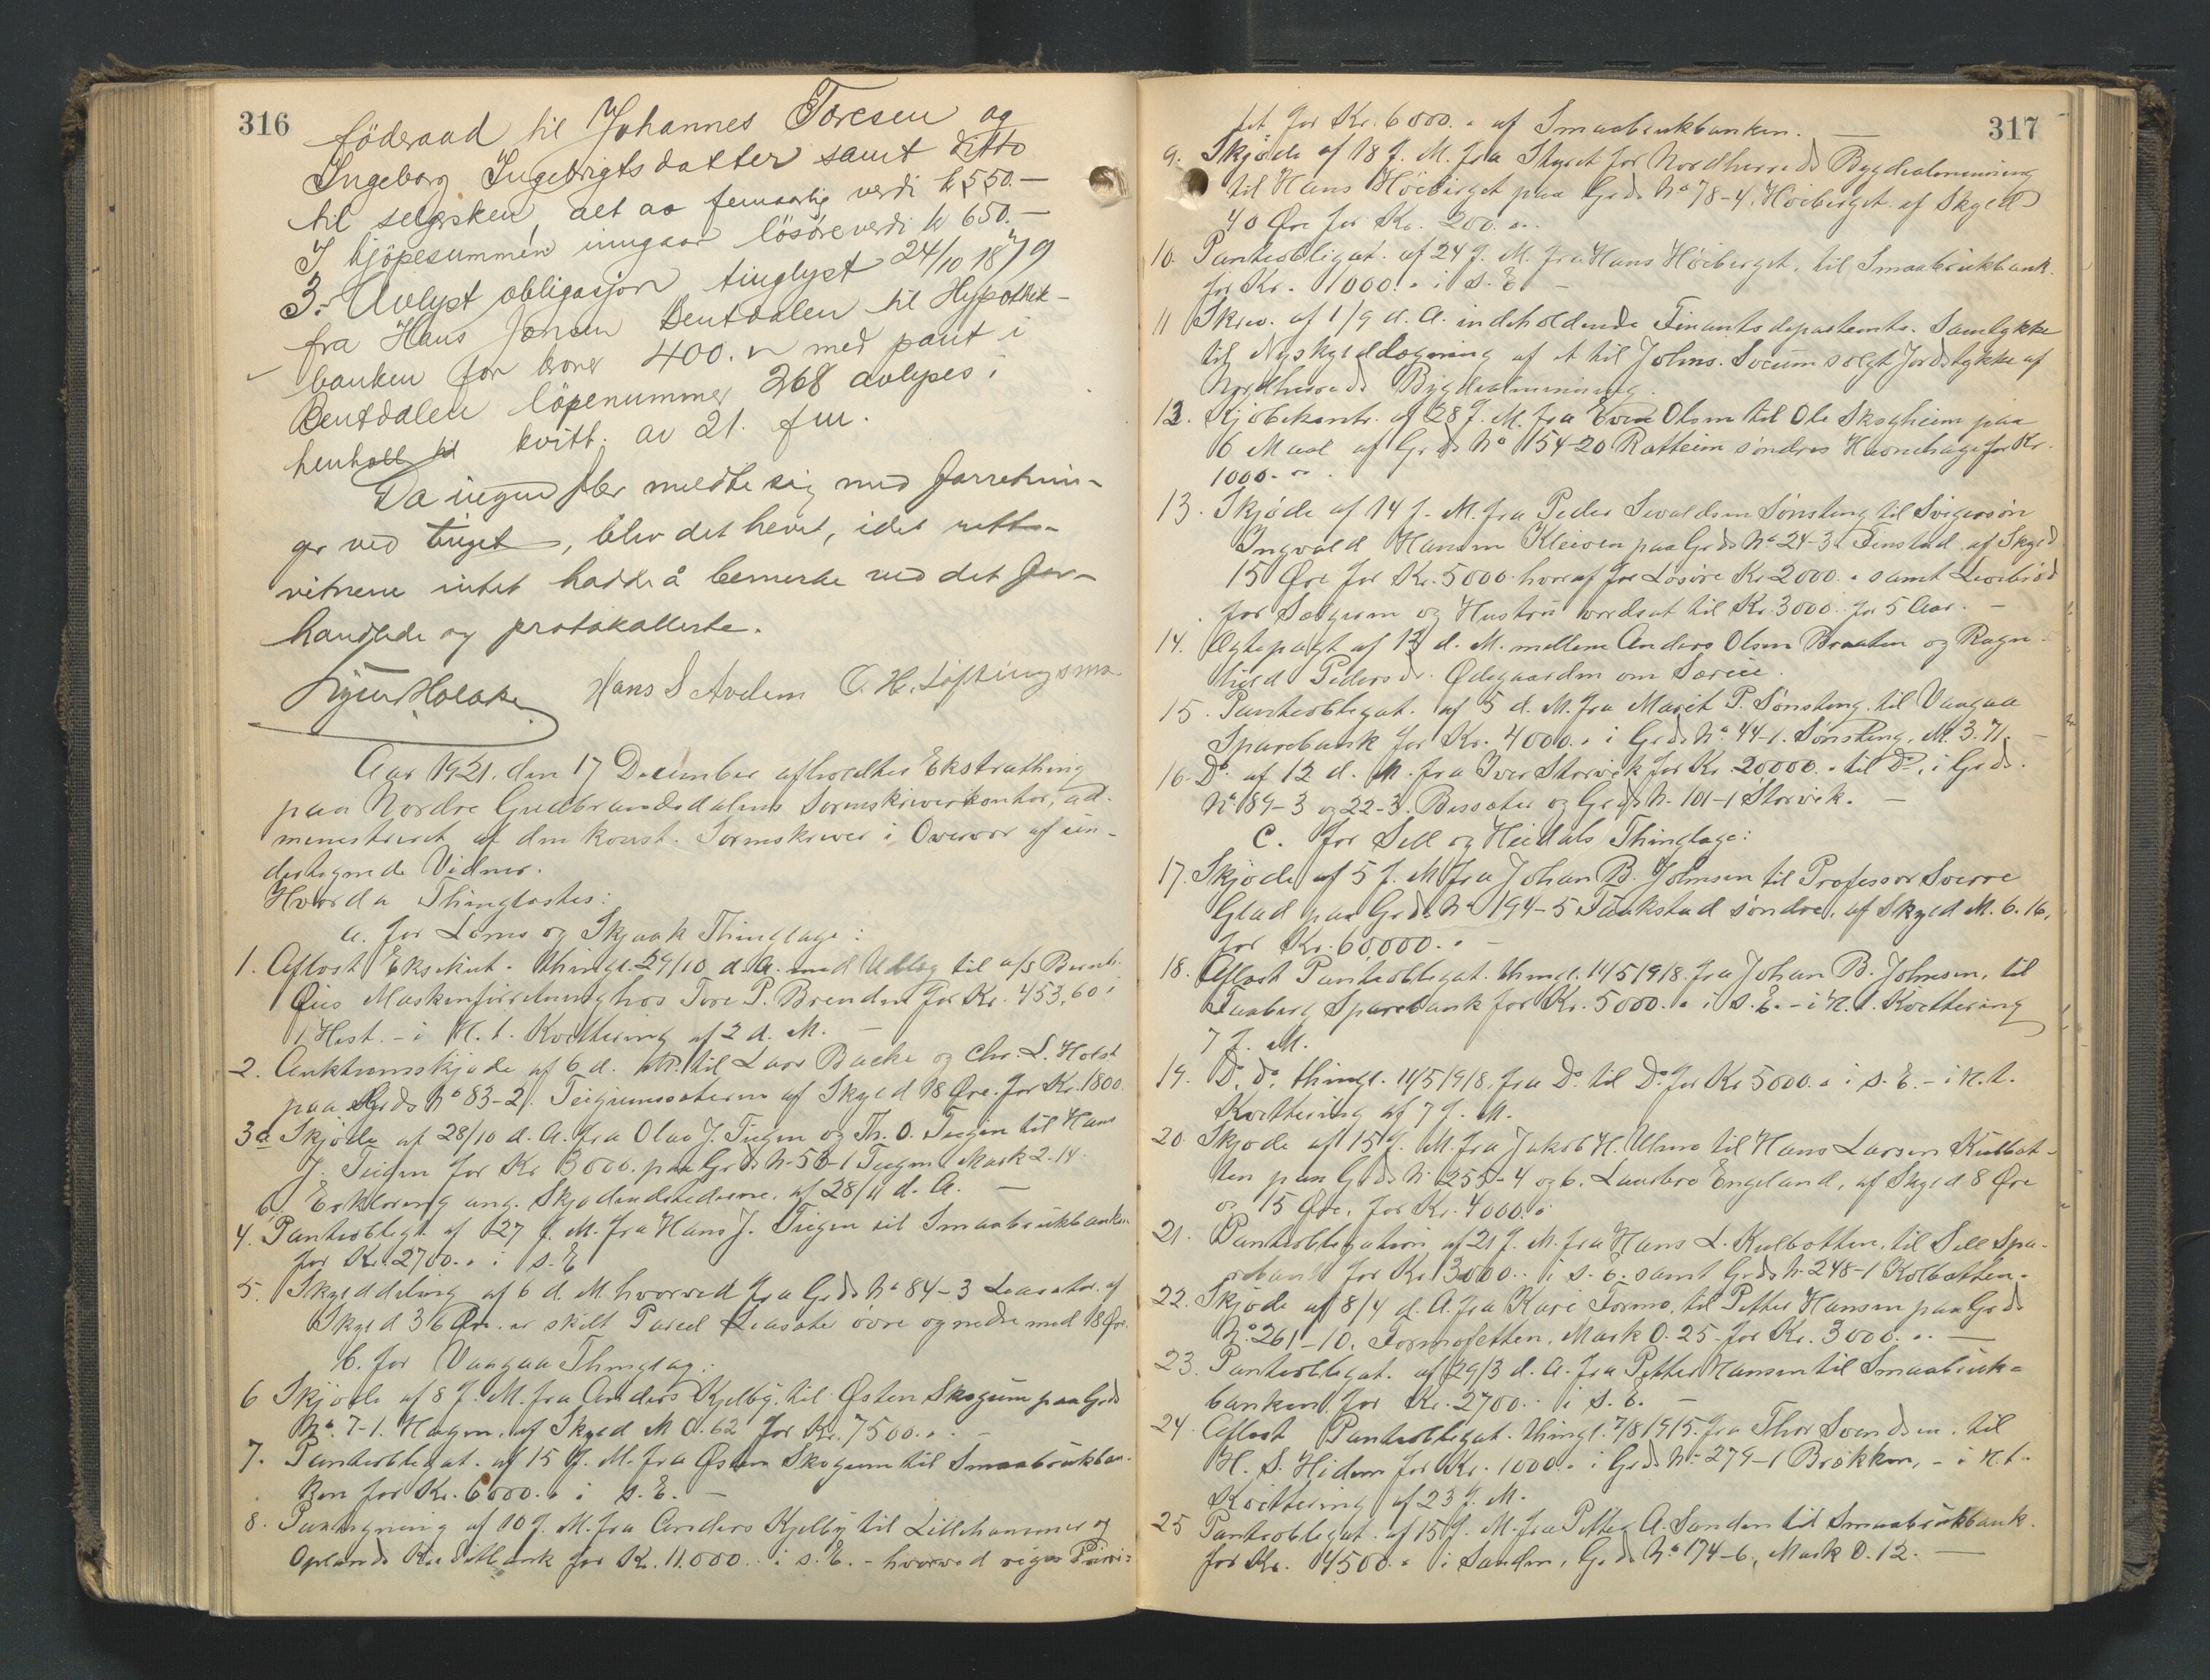 316
föderaad til Johannes Toresen og
Ingeborg Ingebrigtsdatter samt ditto
til selgsken, alt av femaarlig verdi k 550.—
I kjöpesummen inngaar lösöreverdi k 650.—
3. Avlyst obligasjon tinglyst 24/10 1879
fra Hans Jonsen Bentdalen til Hypothek-
banken for kroner 400.- med pant i
Bentdalen löpenummer 268 avlyses i
henhold til kvitt. av 21. f.m.
Da ingen fler meldte sig med forretnin-
ger ved tinget, blev det hevet, idet retts-
vitnene intet hadde å bemerke ved det for-
handlede og protokollerte.
Hans S Avdem O. H. Löftingsmo
Aar 1921, den 17 December afholdtes Ekstrathing
paa Nordre Gudbrandsdalens Sorenskriverkontor, ad-
ministreret af den konst. Sorenskriver i Overvær af un-
dertegnede Vidner.
Hvorda Thinglæstes:
a. for Loms og Skjaak Thinglage:
1. Aflæst Eksekut. thingl. 29/10 d. A. med Udlæg til a/s
Maskinforretning hos Tore P. Brenden for Kr. 453,60 i
1 Hest. - i H. t. Kvittering af 2 d. M. —
2. Auktionsskjøde af 6 d. M. til Lars Bakke og Chr. L. Holst
paa Grds No 83-2. Teigumssæteren af Skyld 18 Øre. for Kr. 1800.
3a Skjøde af 28/10 d. A. fra Olav J. Teigen og Th. O. Teigen til Hans
J. Teigen for Kr 3000. paa Grds N. 53-1 Teigen Mark 2.14.
b. Erklæring ang. Skjødeudstederne. af 28/11 d. A. —
4. Panteobligt. af 27 f. M. fra Hans J. Teigen til Smaabrukbanken
for Kr. 2700.. i s. E
5. Skylddeling af 6 d. M. hvorved fra Grds No 84-3 Leasæter. af
Skyld 36 Øre. er skilt Parcel Leasæter øvre og nedre med 18 Øre.
b. for Vaagaa Thinglag:
6 Skjøde af 8 f. M. fra Anders Kjelby. til Østen Skogum paa Grds
No. 7-1. Hagen. af Skyld M 0.62 for Kr. 7500.. -
7. Panteobligat. af 15 f. M. fra Østen Skogum til Smaabrukban-
ken for Kr. 6000.. i s. E. —
8. Pantegning af 10 f. M. fra Anders Kjelby til Lillehammer og
Oplands Kreditbank for Kr. 11.000.. i s. E. - hvorved viges Priori-
317
tet for Kr. 6000.. af Smaabrukbanken. —
9. Skjøde af 18 f. M. fra Styret for Nordherreds Bygdealmenning
til Hans Høiberget paa Grds No 78-4. Høiberget. af Skyld
40 Øre for Kr. 200...
10. Panteobligat. af 24 f. M. fra Hans Høiberget. til Smaabrukbank.
for Kr. 1000.. i s. E. —
11 Skriv. af 1/9 d. A. indeholdende Finantsdepartemts. Samtykke
til Nyskyldlægning af et til Johns. Svem solgt Jordstykke af
Nordherreds Bygdealmenning.
12. Kjøbekontr. af 28 f. M. fra Even Olsen til Ole Skogheim paa
6 Maal af Grds No 154-20 Ratteim søndres Havnehage for Kr.
1000...
13. Skjøde af 14 f. M. fra Peder Sevaldsen Sønsteng til Svigersøn
Ingvald Hansen Kleiven paa Grds No 24-3. Finstad af Skyld
15 Øre for Kr. 5000. hvoraf for Løsøre Kr. 2000.. samt Livebrød
for Sælgeren og Hustru værdsat til Kr. 3000. for 5 Aar. —
14. Ægtepagt af 13 d. M. mellem Anders Olsen Braaten og Ragn-
hild Pedersd. Ødegaarden om Særeie.
15. Panteobligat. af 5 d. M. fra Marit P. Sønsteng. til Vaagaa
Sparebank for Kr. 4000.. i Grds No. 44-1. Sønsteng. M. 3.71. —
16. Do. af 12 d. M. fra Iver Storvik for Kr. 20,000.. til Do. i Grds.
No 189-3 og 22-3. Bessæter og Grds N. 101-1 Storvik. —
C. for Sell og Heidals Thinglage:
17. Skjøde af 5 f. M fra Johan B. Johnsen til Professor Sverre
Glad paa Grds. No 194-5 Taakstad søndre. af Skyld M. 6.16.
for Kr. 60,000.. —
18. Aflæst Panteobligat. thingl. 14/5 1918. fra Johan B. Johnsen. til
Faaberg Sparebank for Kr. 5000.. i s. E. - i H. t. Kvittering
7 f. M.
19. Do. do. thingl. 14/5 1918. fra Do til Do. for Kr 5000.. i s. E. - i H. t.
Kvittering af 7 f. M.
20 Skjøde af 15 f. M. fra Jakob H. Ulmo til Hans Larsen Kulbot-
ten paa Grds N. 255-4 og 6. Laurbro Engeland, af Skyld 8 Øre
og 15 Øre. for Kr. 4000..
21. Panteobligation af 21 f. M. fra Hans L. Kulbotten. til Sell Spa-
rebank for Kr. 3000.. i s. E. samt Grds N. 248-1 Kolbotten.
22. Skjøde af 8/4 d. A. fra Kari Formo. til Petter Hansen paa Grds
No. 261-10. Formosletten. Mark 0.25 for Kr. 3000... —
23. Panteobligat. af 29/3 d. A. fra Petter Hansen til Smaabruk-
banken for Kr. 2700.. i s. E. —
24. Aflæst Panteobligat. thingl. 7/8 1915. fra Thor Svendsen. til
H. S. Hidem for Kr. 1000.. i Grds N. 279-1 Brøkken, - i H. t.
Kvittering af 23 f. M.
25 Panteobligat. af 15 f. M. fra Petter A. Sanden til Smaabrukbank.
for Kr. 4500.. i Sanden, Grds No 174-6, Mark 0.12. —